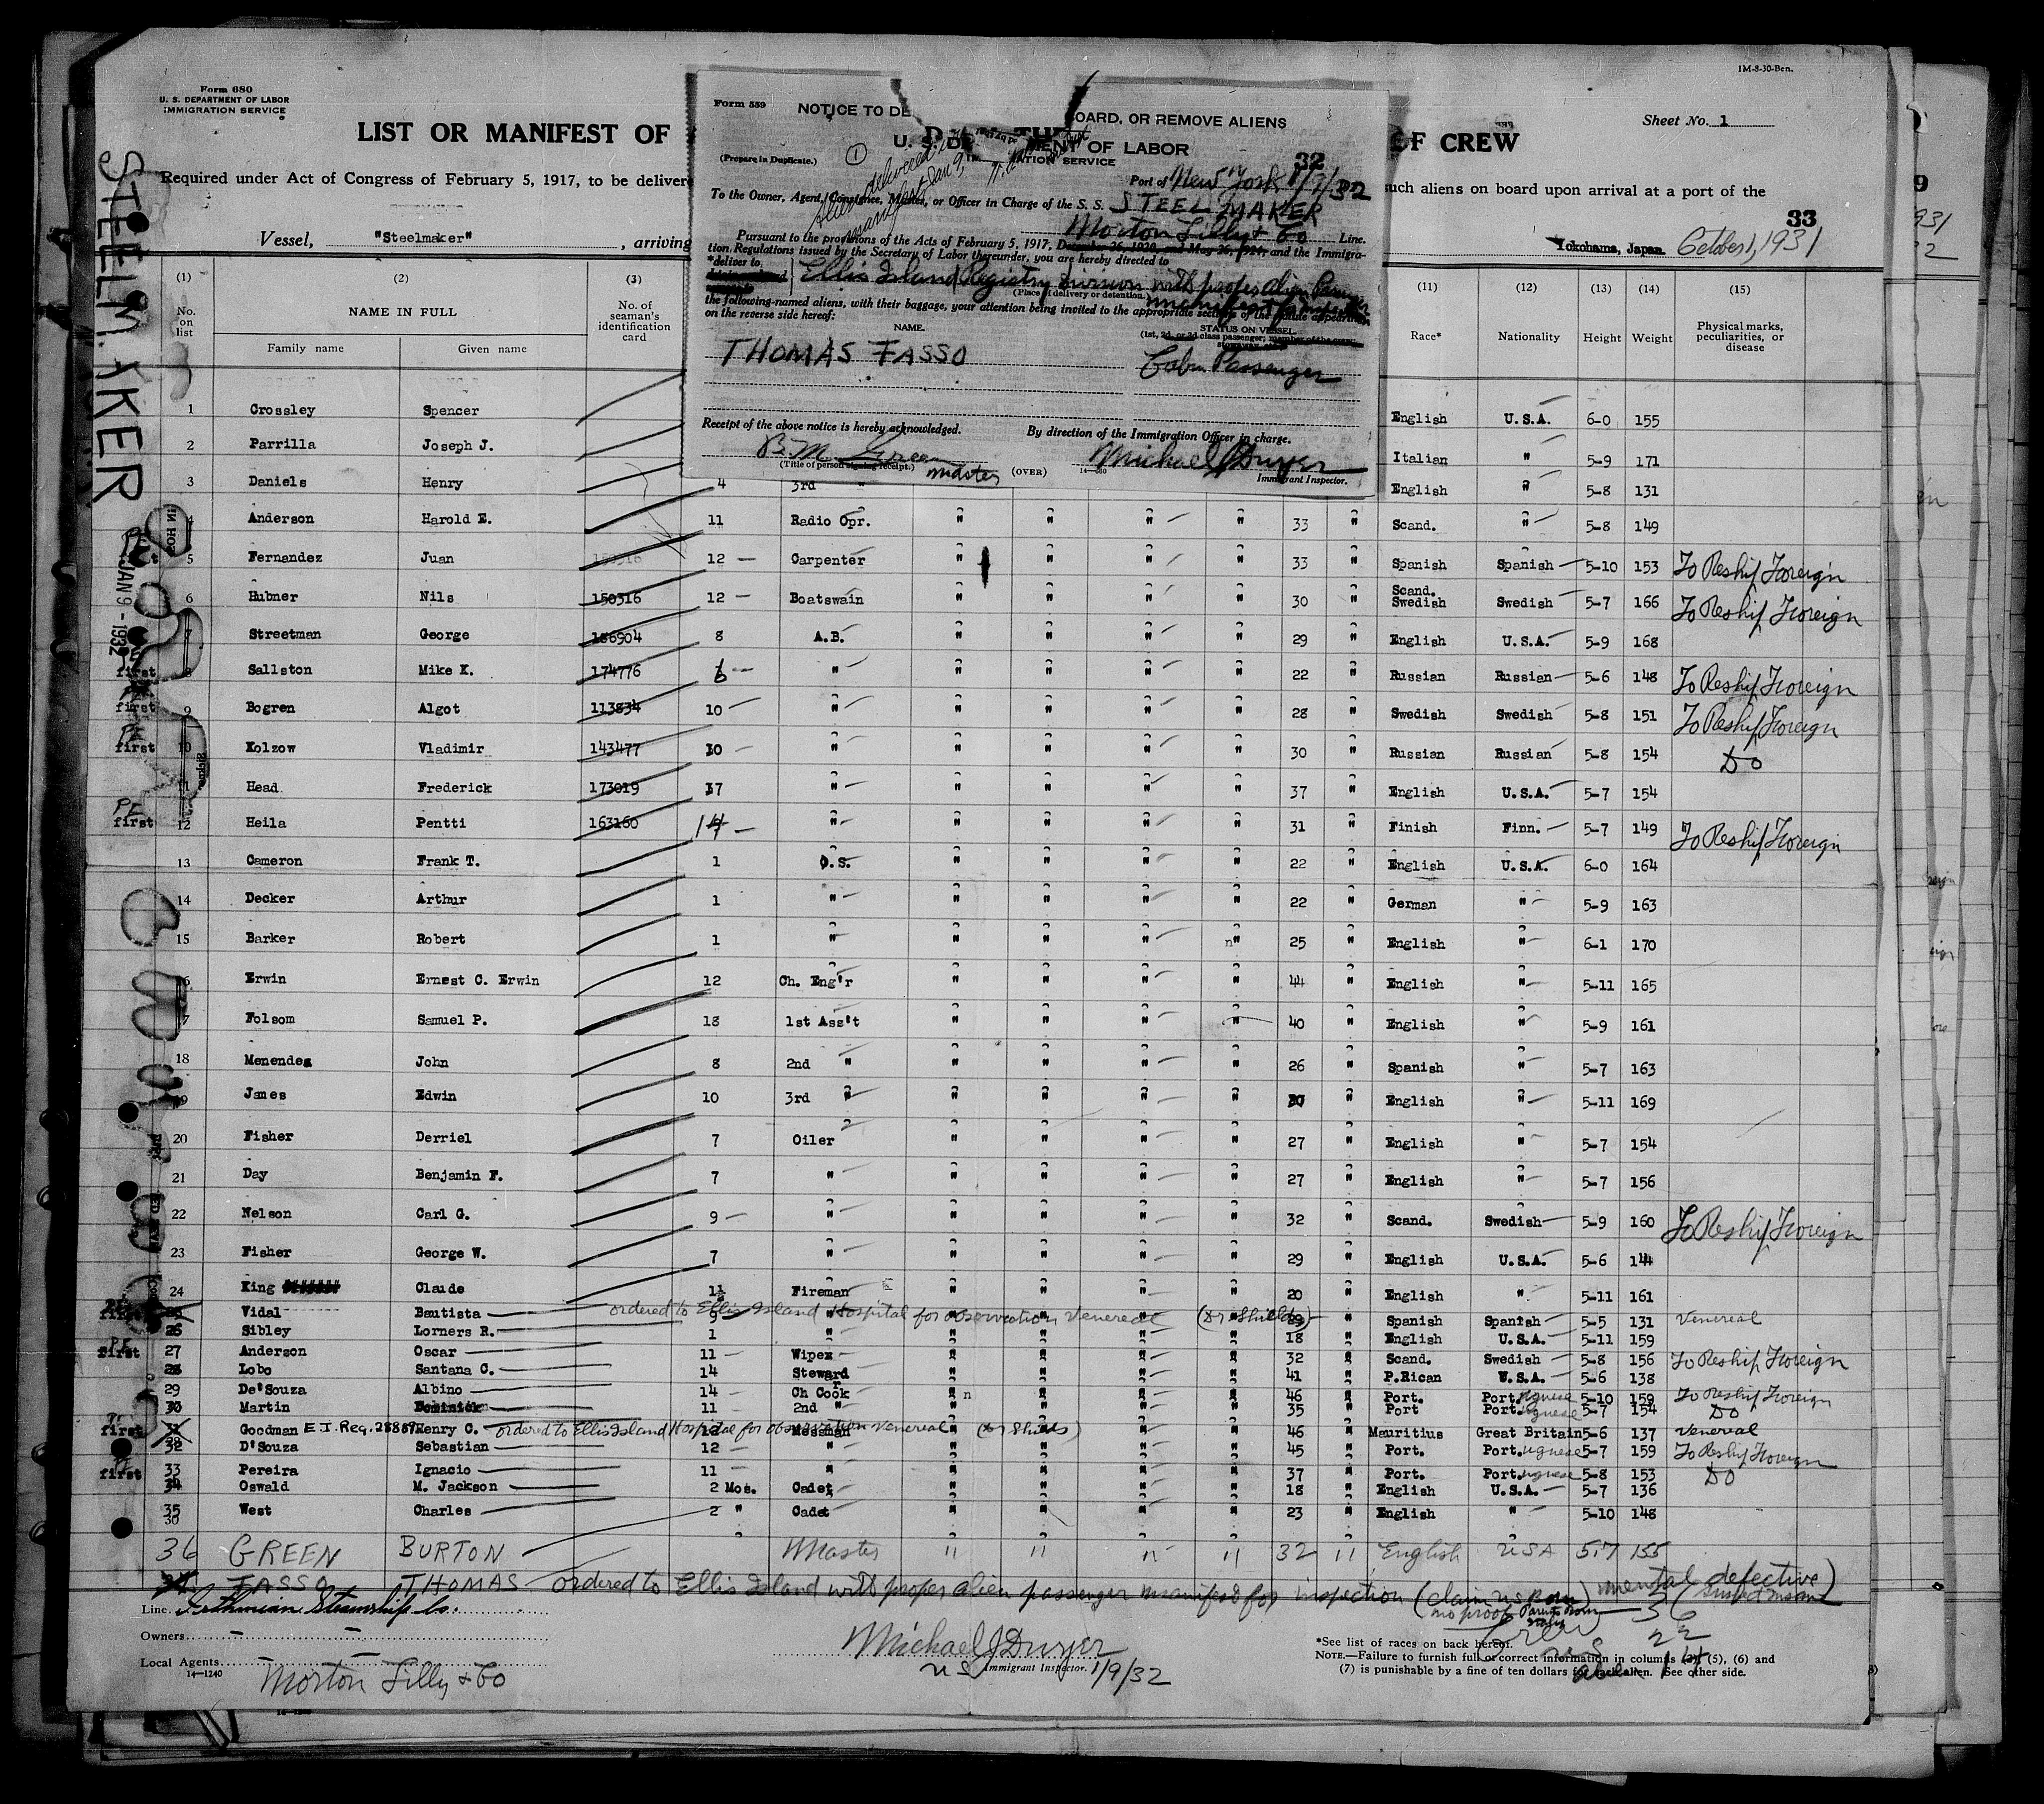 1M-8-30-Ben.
Form 680
U. S. DEPARTMENT OF LABOR
IMMIGRATION SERVICE
Sheet No. 1
LIST OR MANIFEST OF
OF CREW
Required under Act of Congress of February 5, 1917, to be delivere
such aliens on board upon arrival at a port of the
33
Vessel, "Steelmaker" , arriving
Yokohama, Japan. October 1, 1931
STEELMAKER
JAN 9 - 1932
Form 559
NOTICE TO DE
BOARD, OR REMOVE ALIENS
U. S. DE MENT OF LABOR
ATION SERVICE
(Prepare in Duplicate.)
1
32
Port of New York 1/9/32
To the Owner, Agent, Consignee, Master, or Officer in Charge of the S. S. STEELMAKER
Morton Lilly & Co Line.
Pursuant to the provisions of the Acts of February 5, 1917, December 26, 1920, and May 26, 1924, and the Immigra-
tion Regulations issued by the Secretary of Labor thereunder, you are hereby directed to
*deliver to,
Ellis Island Registry Division with proper alien
(Place of delivery or detention.)
the following-named aliens, with their baggage, your attention being invited to the appropriate sections of the statute appearing
on the reverse side hereof:
NAME.
STATUS ON VESSEL.
(1st, 2d, or 3d class passenger; member of the crew;
stowaway, etc.)
THOMAS FASSO
Cabin Passenger
Receipt of the above notice is hereby acknowledged.
By direction of the Immigration Officer in charge.
B. M. Green
Michael J Dwyer
(Title of person signing receipt.)
Master
(OVER)
Immigrant Inspector.
(1) (2) (3) (11) (12) (13) (14) (15)
No. on list
NAME IN FULL
Family name Given name
No. of seaman's identification card
Race* Nationality Height Weight
Physical marks, peculiarities, or disease
1 Crossley Spencer English U.S.A. 6-0 155
2 Parrilla Joseph J. Italian " 5-9 171
3 Daniels Henry 4 3rd " English " 5-8 131
4 Anderson Harold E. 11 Radio Opr. " " " " 33 " Scand. " 5-8 149
5 Fernandez Juan 12 Carpenter " " " " 33 " Spanish Spanish 5-10 153 To Reship Foreign
6 Hubner Nils 150316 12 Boatswain " " " " 30 " Scand. Swedish Swedish 5-7 166 To Reship Foreign
7 Streetman George 186904 8 A.B. " " " " 29 " English U.S.A. 5-9 168
first 8 Sallston Mike K. 174776 6 " " " " " 22 " Russian Russian 5-6 148 To Reship Foreign
first 9 Bogren Algot 113834 10 " " " " " 28 " Swedish Swedish 5-8 151 To Reship Foreign
first 10 Kolzow Vladimir 143477 30 " " " " " 30 " Russian Russian 5-8 154 Do
11 Head Frederick 173019 37 " " " " " 37 " English U.S.A. 5-7 154
PE first 12 Heila Pentti 163160 14 " " " " " 31 " Finish Finn. 5-7 149 To Reship Foreign
13 Cameron Frank T. 1 O.S. " " " " 22 " English U.S.A. 6-0 164
14 Decker Arthur 1 " " " " " 22 " German " 5-9 163
15 Barker Robert 1 " " " " n" 25 " English " 6-1 170
16 Erwin Ernest C. Erwin 12 Ch. Eng'r " " " " 44 " English " 5-11 165
17 Folsom Samuel P. 18 1st Ass't " " " " 40 " English " 5-9 161
18 Menendes John 8 2nd " " " " " 26 " Spanish " 5-7 163
19 James Edwin 10 3rd " " " " " " English " 5-11 169
20 Fisher Derriel 7 Oiler " " " " 27 " English " 5-7 154
21 Day Benjamin F. 7 " " " " " 27 " English " 5-7 156
22 Nelson Carl G. 9 " " " " " 32 " Scand. Swedish 5-9 160 To Reship Foreign
23 Fisher George W. 7 " " " " " 29 " English U.S.A. 5-6 144
24 King Claude Fireman " " " " 20 " English " 5-11 161
first Vidal Bautista ordered to Ellis Island Hospital for observation Venereal (Dr Shields) 9 Spanish Spanish 5-5 131 Venereal
26 Sibley Lorners R. 1 " " " " " 18 " English U.S.A. 5-11 159
PE first 27 Anderson Oscar 11 Wiper " " " " 32 " Scand. Swedish 5-8 156 To Reship Foreign
28 Lobo Santana C. 14 Steward " " " " 41 " P.Rican U.S.A. 5-6 138
29 De'Souza Albino 14 Ch Cook " n " " " 46 " Port. Portuguese 5-10 159 To Reship Foreign
30 Martin Dominick 11 2nd " " " " " 35 " Port Portuguese 5-7 154 Do
first 31 Goodman E.I. Reg. Henry C. ordered to Ellis Island Hospital for observation Venereal (Dr Shields) 12 Messman 46 " Mauritius Great Britain 5-6 137 Venereal
32 D'Souza Sebastian 12 " " " " " 45 " Port. Portuguese 5-7 159 To Reship Foreign
first 33 Pereira Ignacio 11 " " " " " 37 " Port. Portuguese 5-8 153 Do
34 Oswald M. Jackson 2 Mos. Cadet " " " " 18 " English U.S.A. 5-7 136
35 West Charles 2 " Cadet " " " " 23 " English " 5-10 148
30
36 GREEN BURTON Master " " " " 32 " English USA 5-7 155
FASSO THOMAS ordered to Ellis Island with proper alien passenger manifest for inspection (claim US Born) mental defective)
no proof Parents Born Italy
Line. Isthmian Steamship Co.
Owners
Local Agents
14-1240
Morton Lilly & Co
Michael J Dwyer
US Immigrant Inspector. 1/9/32
Crew 36
US 22
alien 14
*See list of races on back hereof.
NOTE.—Failure to furnish full or correct information in columns (2), (5), (6) and
(7) is punishable by a fine of ten dollars for each alien. See other side.